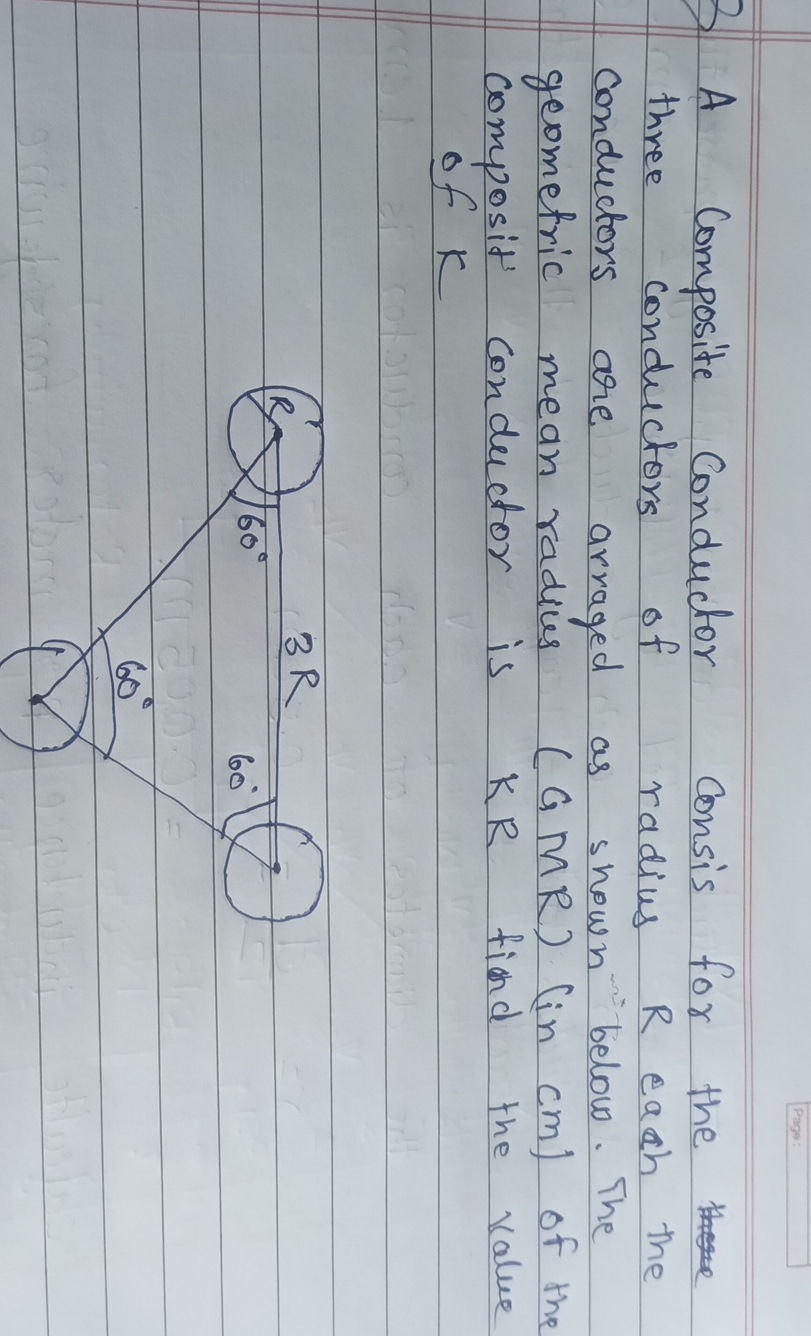 A Composite Conductor Consis for the
three conductors of radius R each the
Conductors are arraged as shown below. The
geometric mean radius (GMR) (in cm) of the
Composit Conductor is KR find the value
of K
R
3R
60°
60°
60°
Page: